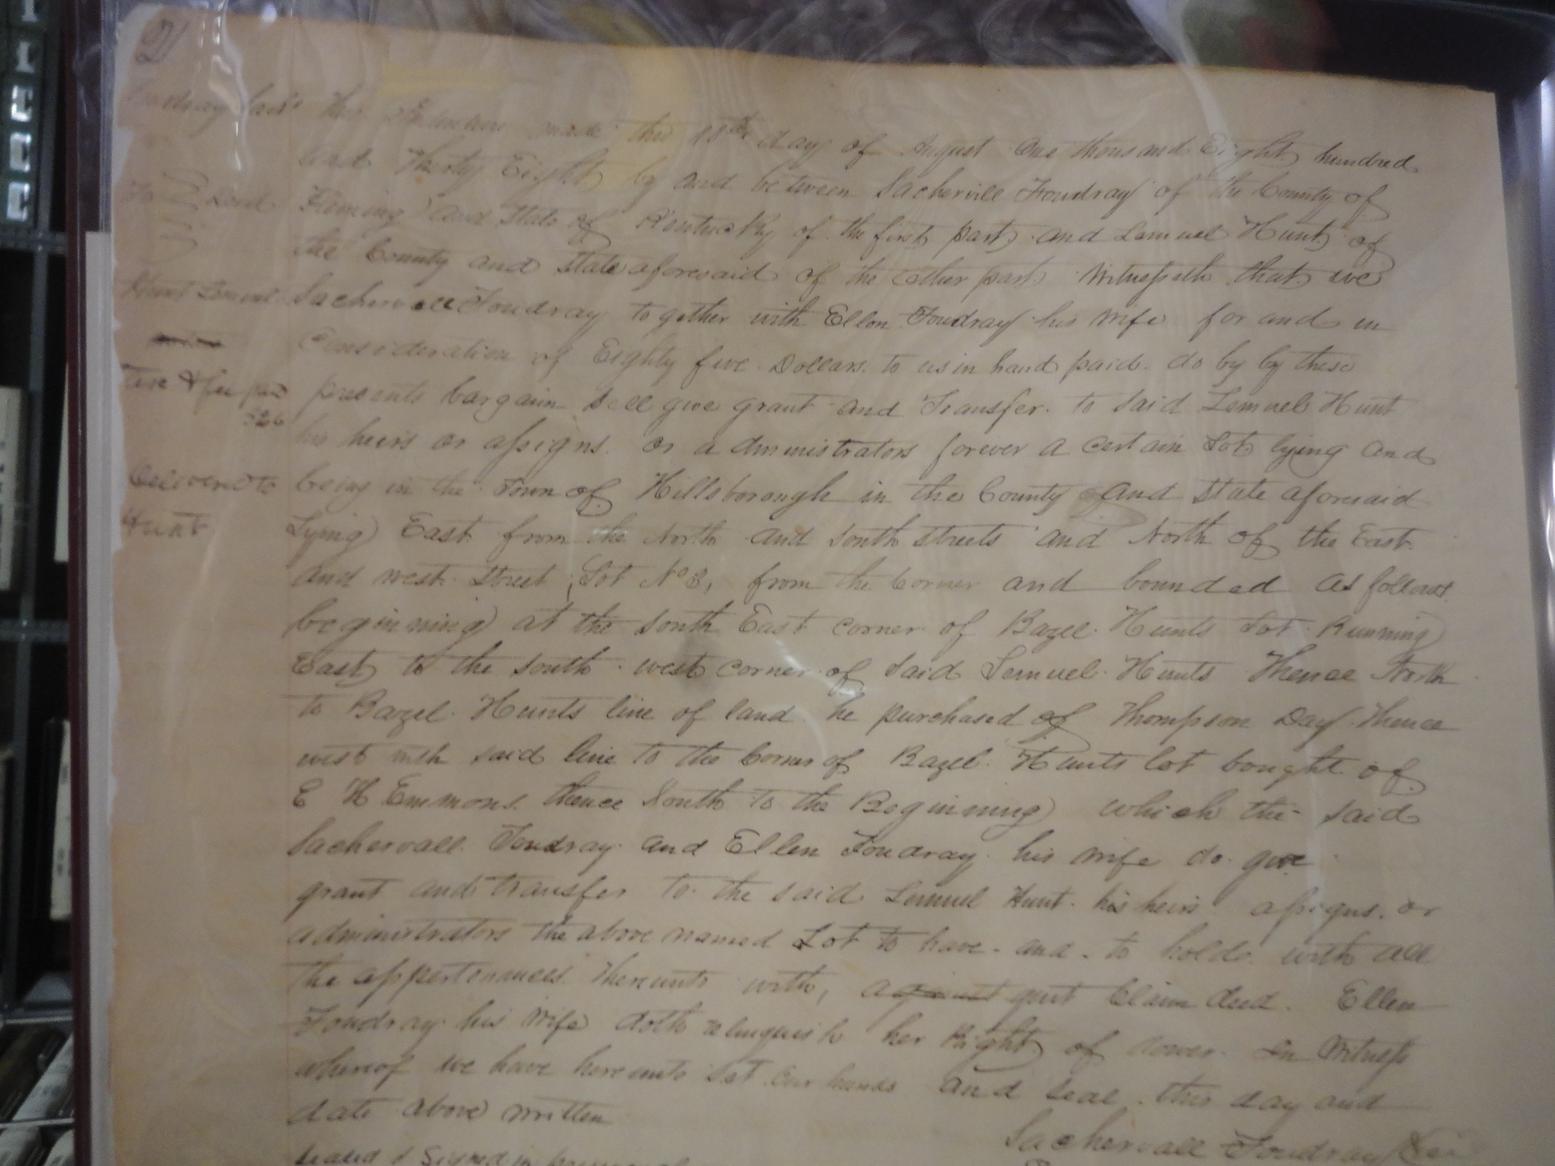 21
This Indenture made this 18th day of August One thousand Eight hundred
And Thirty Eight by and between Sachervill Foudray of the County of
Fleming and State of Kentucky of the first part and Lemuel Hunt of
the County and State aforesaid of the other part Witnesseth that we
Hunt Lemuel
Sachervall Foudray together with Ellen Foudray his wife for and in
Consideration of Eighty five Dollars to us in hand paid do by by these
presents bargain Sell give grant and Transfer to said Lemuel Hunt
his heirs or assigns or administrators forever a certain Lot lying and
Delivered to
being in the Town of Hillsborough in the County of and State aforesaid
Hunt
Lying East from the North and South streets and North of the East
and west Street, Lot No 3, from the Corner and bounded as follows
beginning at the South East corner of Bazel Hunts Lot Running
East to the South west corner of said Lemuel Hunts Thence North
to Bazel Hunts line of land he purchased of Thompson Day thence
west with said line to the Corner of Bazel Hunts lot bought of
E H Emmons thence South to the Beginning which the said
Sachervall Foudray and Ellen Foudray his wife do give
grant and transfer to the said Lemuel Hunt his heirs assigns or
administrators the above named Lot to have and to hold with all
the appertenances thereunto with, against quit Claim deed. Ellen
Foudray his wife doth relinquish her Right of dower. In Witness
whereof we have hereunto set our hands and seal this day and
date above written
Sachervall Foudray
Sealed & Signed in